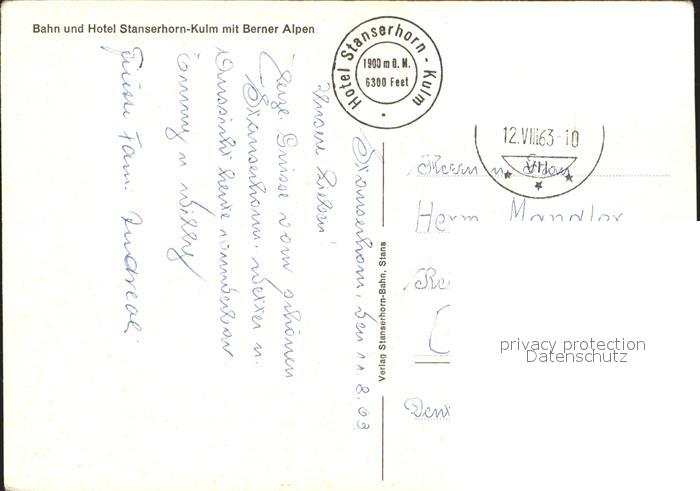 Bahn und Hotel Stanserhorn-Kulm mit Berner Alpen
Hotel Stanserhorn - Kulm
1900 m ü. M.
6300 Feet
12.VIII.63-10
VII
Stanserhorn, den 11.8.63
Unsere Lieben!
Grüsse vom schönen
Stanserhorn. Wetter u.
Aussicht heute wunderbar.
Emmy u Willy
Grüsse Fam.
Verlag Stanserhorn-Bahn, Stans
Herrn u. Frau
Herm. Mandler
privacy protection
Datenschutz